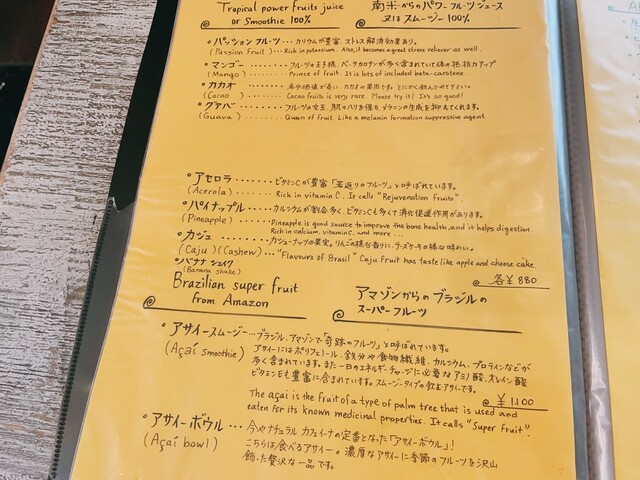 Tropical power fruits juice
or Smoothie 100%
南米からのパワーフルーツジュース
又は スムージー 100%
パッションフルーツ・・・カリウムが豊富、ストレス解消効果あり。
(Passion Fruit)・・・Rich in potassium. Also, it becomes a great stress reliever as well.
マンゴー・・・・・・フルーツの王子様、ベータカロテンが多く含まれていて体の抵抗力アップ
(Mango)・・・・・・Prince of fruit. It is lots of included beta-carotene
カカオ・・・・・・
(Cacao)・・・・・・Cacao fruits is very rare. Please try it! It's so good!
グァバ・・・・・・フルーツの女王、肌のハリを保ち、メラニンの生成を抑えてくれます。
(Guava)・・・・・・Queen of fruit. Like a melanin formation suppressive agent
アセロラ・・・・・・ビタミンCが豊富「若返りのフルーツ」と呼ばれています。
(Acerola)・・・・・・Rich in vitamin C. It calls "Rejuvenation Fruits".
パイナップル・・・カルシウムが割合多く、ビタミンCも多くて消化促進作用があります。
(Pineapple)・・・・・・Pineapple is good source to improve the bone health, and it helps digestion.
Rich in calcium, vitamin C, and more...
カジュー・・・・・・カシューナッツの果実。りんごの様な香りに、チーズケーキの様な味わい。
(Caju) (Cashew)..."Flavours of Brasil" Caju Fruit has taste like apple and cheese cake.
バナナ シェイク
(Banana shake)
各¥880
Brazilian super fruit
from Amazon
アマゾンからのブラジルの
スーパーフルーツ
アサイースムージー・・・ブラジル、アマゾンで「奇跡のフルーツ」と呼ばれています。
(Açaí smoothie)
アサイーにはポリフェノール、鉄分や食物繊維、カルシウム、プロテインなどが
多く含まれています。また一日のエネルギーチャージに必要なアミノ酸、オレイン酸
ビタミンEも豊富に含まれています。スムージータイプの飲むアサイーです。
¥1100
The açai is the fruit of a type of palm tree that is used and
eaten for its known medicinal properties. It calls "Super Fruit".
アサイーボウル・・・今やナチュラルカフェイーナの定番となった「アサイーボウル」!
(Açaí bowl)
こちらは食べるアサイー。濃厚なアサイーに季節のフルーツを沢山
飾った贅沢な一品です。